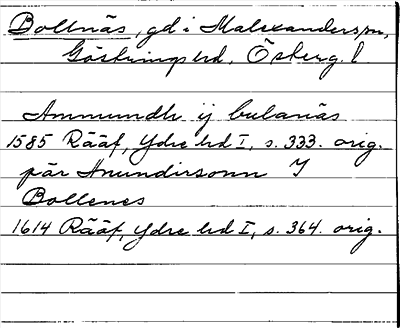 Bollnäs, gd i Malexanders sn,
Göstrings hd, Österg. l
Ammundh ij bulanäs
1585 Rääf, Ydre hd I, s. 333. orig.
pär Anundirsonn I
Bollenes
1614 Rääf, Ydre hd I, s. 364. orig.